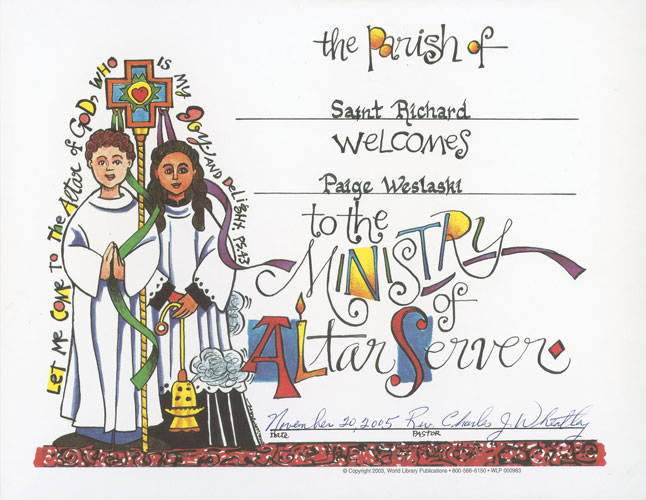 the Parish of
Saint Richard
WELCOMES
Paige Weslaski
to the
MINISTRY
of
Altar Server
LET ME COME TO THE ALTAR OF GOD, WHO IS MY JOY AND DELIGHT. PS. 43
November 20, 2005 Rev. Charles J. Wheatley
DATE PASTOR
© Copyright 2003, World Library Publications • 800-566-6150 • WLP 000983